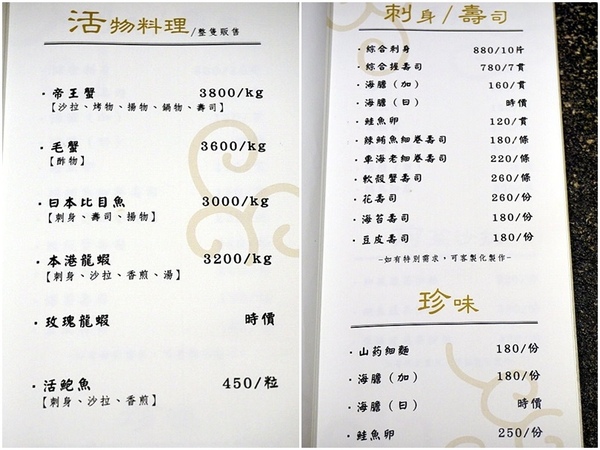 活物料理/整隻販售
·帝王蟹 3800/kg
【沙拉、烤物、揚物、鍋物、壽司】
·毛蟹 3600/kg
【酢物】
·日本比目魚 3000/kg
【刺身、壽司、揚物】
·本港龍蝦 3200/kg
【刺身、沙拉、香煎、湯】
·玫瑰龍蝦 時價
·活鮑魚 450/粒
【刺身、沙拉、香煎】
刺身/壽司
·綜合刺身 880/10片
·綜合握壽司 780/7貫
·海膽（加） 160/貫
·海膽（日） 時價
·鮭魚卵 120/貫
·辣鮪魚細卷壽司 180/條
·車海老細卷壽司 220/條
·軟殼蟹壽司 260/條
·花壽司 260/份
·海苔壽司 180/份
·豆皮壽司 180/份
-如有特別需求，可客製化製作-
珍味
·山药細麵 180/份
·海膽（加） 180/份
·海膽（日） 時價
·鮭魚卵 250/份